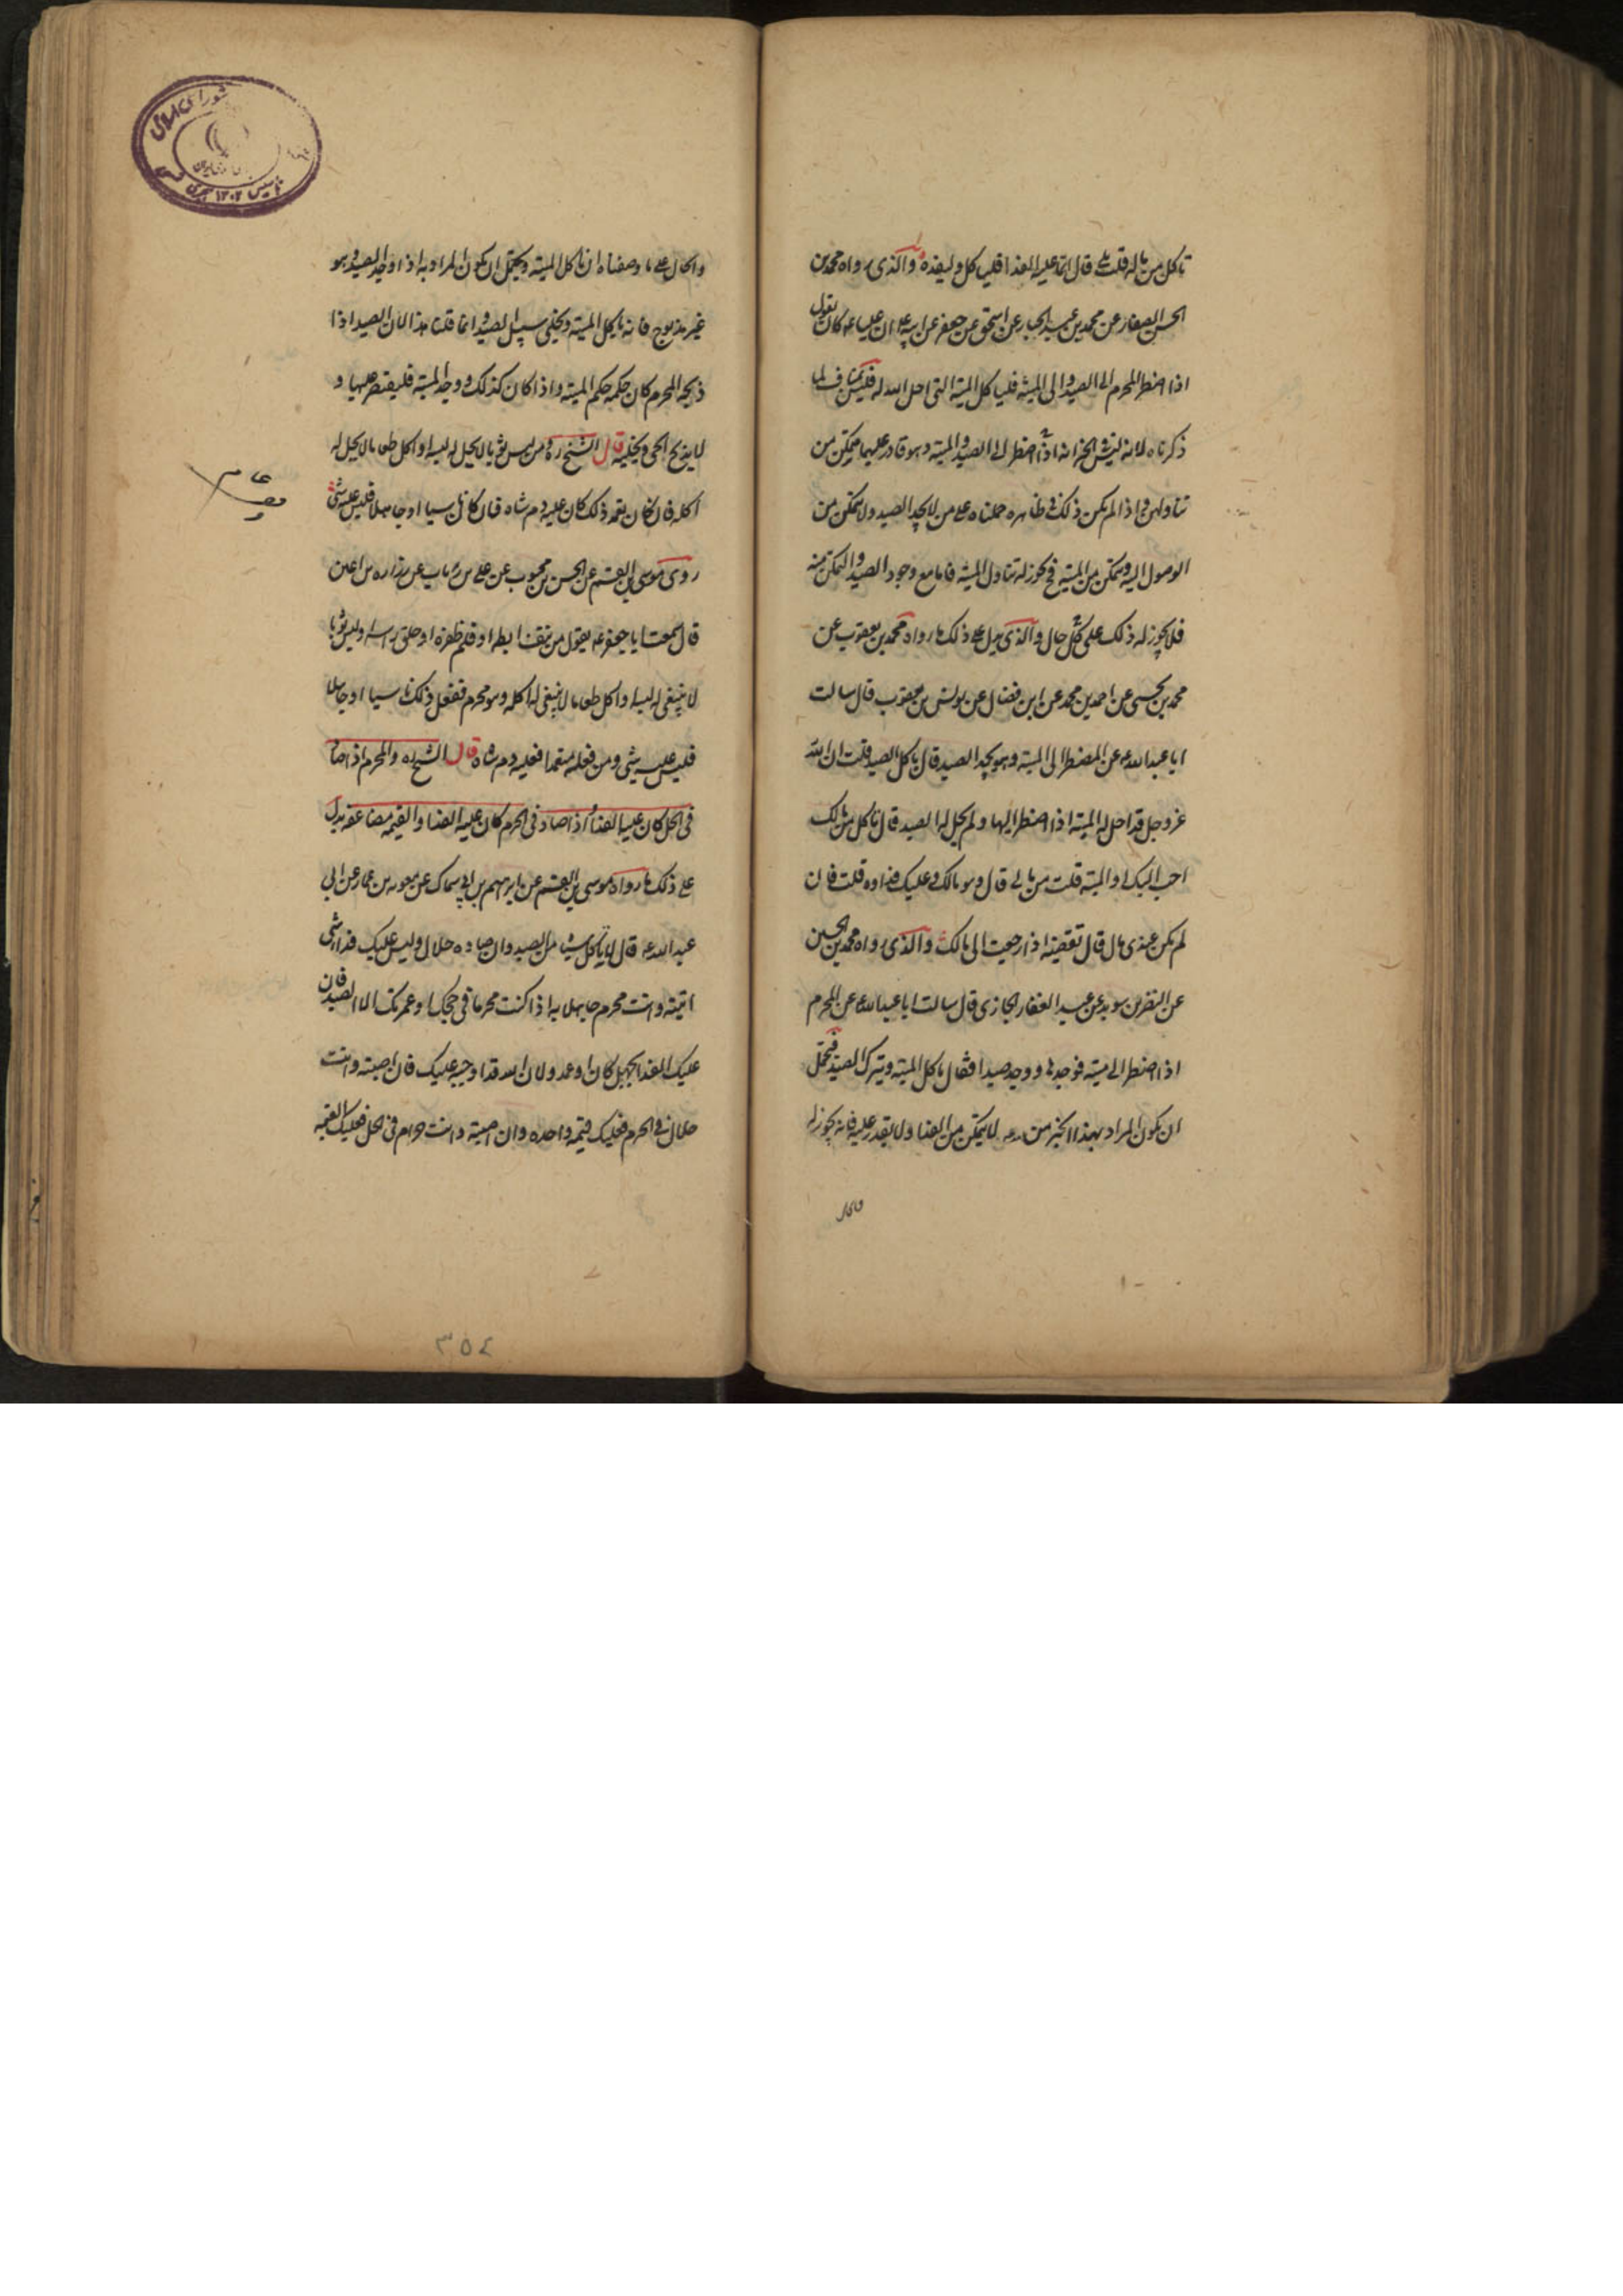 تاكل من ماله قلت بلى قال انما عليه الفدا فلياكل وليفده والذى رواه محمد بن
الحسن الصفار عن محمد بن عبد الجبار عن اسحق عن جعفر عن ابيه ع ان عليا ع كان يقول
اذا اضطر المحرم الى الصيد والى الميتة فلياكل الميتة التى احل الله له فليس بمناف لما
ذكرناه لانه ليس فى الخبر انه اذا اضطر الى الصيد والميتة وهو قادر عليهما متمكن من
تناولهما واذا لم يكن ذلك فى ظاهره حملناه على من لا يجد الصيد ولا يتمكن من
الوصول اليه ويتمكن من الميتة فيجوز له تناول الميتة فاما مع وجود الصيد والتمكن منه
فلا يجوز له ذلك على كل حال والذى يدل على ذلك ما رواه محمد بن يعقوب عن
محمد بن يحيى عن احمد بن محمد عن ابن فضال عن يونس بن يعقوب قال سالت
ابا عبد الله ع عن المضطر الى الميتة وهو يجد الصيد قال ياكل الصيد قلت ان الله
عز وجل قد احل له الميتة اذا اضطر اليها ولم يحل له الصيد قال تاكل من مالك
احب اليك او الميتة قلت من مالى قال هو مالك وعليك فداوه قلت فان
لم يكن عندى مال قال تقضيه اذا رجعت الى مالك والذى رواه محمد بن الحسين
عن النضر بن سويد عن عبد الغفار الجازى قال سالت ابا عبد الله ع عن المحرم
اذا اضطر الى ميتة فوجدها ووجد صيدا فقال ياكل الميتة ويترك الصيد فيحتمل
ان يكون المراد بهذا الخبر من لا يتمكن من الفدا ولا يقدر عليه فانه يجوز له
والحال على ما وصفناه ان ياكل الميتة ويحتمل ان يكون المراد به اذا وجد الصيد وهو
غير مذبوح فانه ياكل الميتة ويخلى سبيل الصيد وانما قلنا هذا لان الصيد اذا
ذبحه المحرم كان حكمه حكم الميتة واذا كان كذلك ووجد الميتة فليقتصر عليها و
لا يذبح الحى ويخليه قال الشيخ ره ومن لبس ثوبا لا يحل له لبسه او اكل طعاما لا يحل له
اكله فان كان تعمد ذلك كان عليه دم شاه فان كان ناسيا او جاهلا فليس عليه شى
روى موسى بن القسم عن الحسن بن محبوب عن على بن رئاب عن زراره بن اعين
قال سمعت ابا جعفر ع يقول من نتف ابطه او قلم ظفره او حلق راسه او لبس ثوبا
لا ينبغى له لبسه او اكل طعاما لا ينبغى له اكله وهو محرم ففعل ذلك ناسيا او جاهلا
فليس عليه شى ومن فعله متعمدا فعليه دم شاه قال الشيخ ره والمحرم اذا صاد
فى الحل كان عليه الفدا واذا صاد فى الحرم كان عليه الفدا والقيمه مضاعفه يدل
على ذلك ما رواه موسى بن القسم عن ابرهيم بن ابى سماك عن معويه بن عمار عن ابى
عبد الله ع قال لا تاكل شيئا من الصيد وان صاده حلال وليس عليك فدا شى
اتيته وانت محرم جاهلا به اذا كنت محرما فى حجك او عمرتك الا الصيد فان
عليك الفدا بجهل كان او عمد ولان الله قد اوجبه عليك فان اصبته وانت
حلال فى الحرم فعليك قيمه واحده وان اصبته وانت حرام فى الحل فعليك القيمه
والحال
٣٥٤